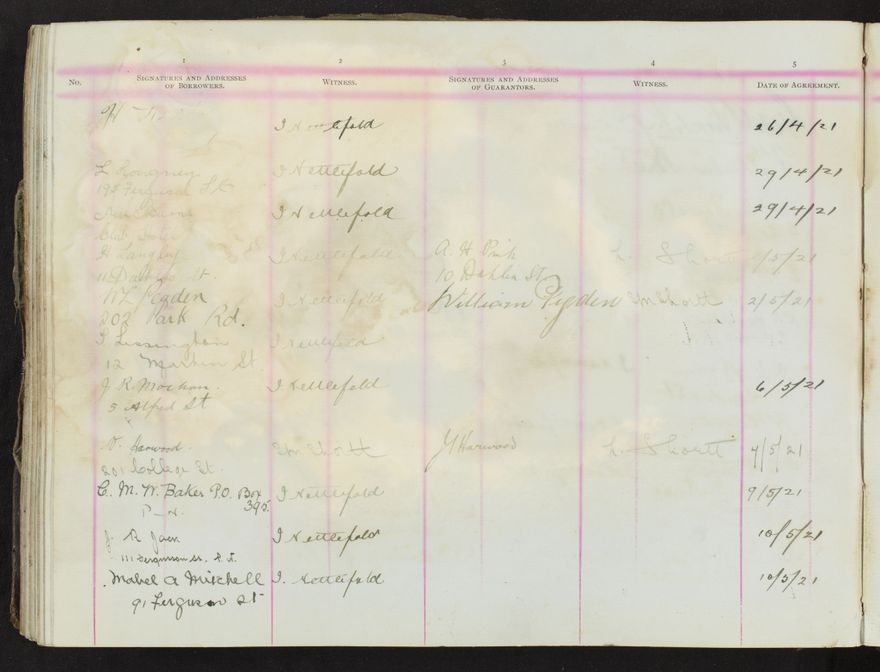 1 2 3 4 5
No. Signatures and Addresses of Borrowers. Witness. Signatures and Addresses of Guarantors. Witness. Date of Agreement.
H I Nettlefold 26/4/21
L Longney I Nettlefold 29/4/21
195 Ferguson St
I Nettlefold 29/4/21
H Langley I Nettlefold A. H. Pink L. Shortt /5/21
11 St. 10 Dahlia St
W L Pigden I Nettlefold William Pigden EM Shortt 2/5/21
202 Park Rd.
Lissington I Nettlefold
12 St.
J R Mochan. I Nettlefold 6/5/21
5 Alfred St
V. Harwood. EM Shortt Harwood L. Shortt 7/5/21
201 College St.
C. M. W. Baker P.O. Box I Nettlefold 9/5/21
395.
P-N.
J. R Jack I Nettlefold 10/5/21
111 Ferguson St. P. N.
Mabel A Mitchell I. Nettlefold 10/5/21
91 Ferguson St